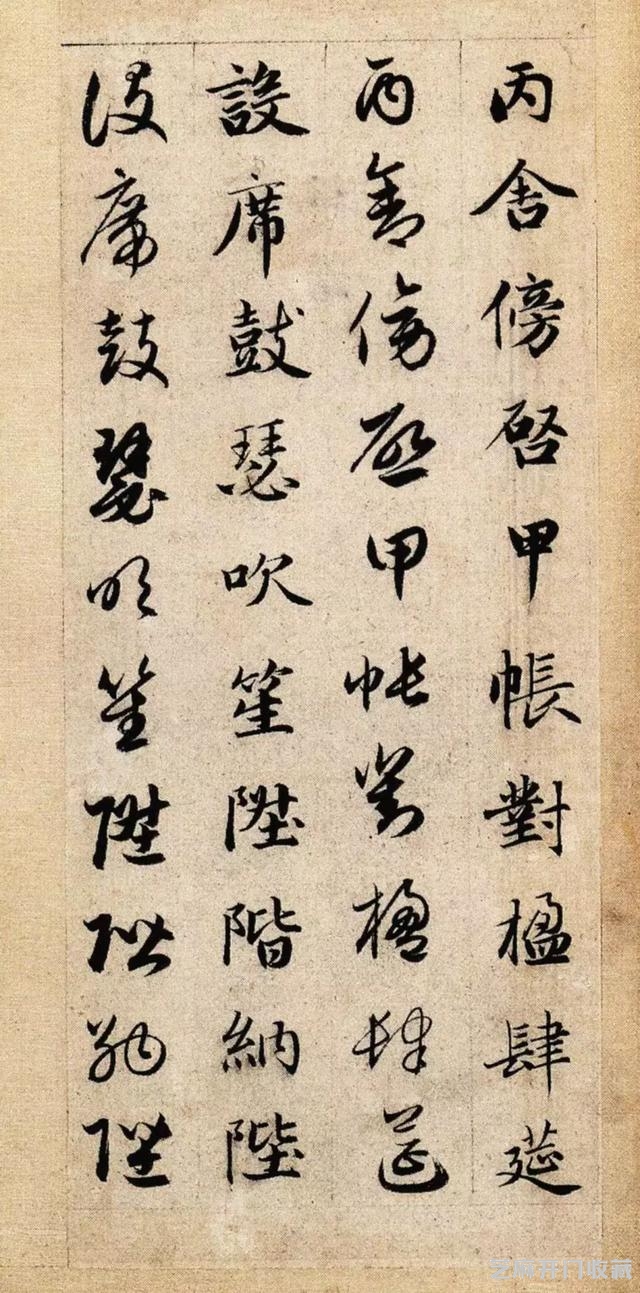 丙舍傍啓甲帳對楹肆莚
丙舍傍啓甲帳對楹肆莚
設席鼓瑟吹笙陞階納陛
設席鼓瑟吹笙陞階納陛
芝麻开门收藏